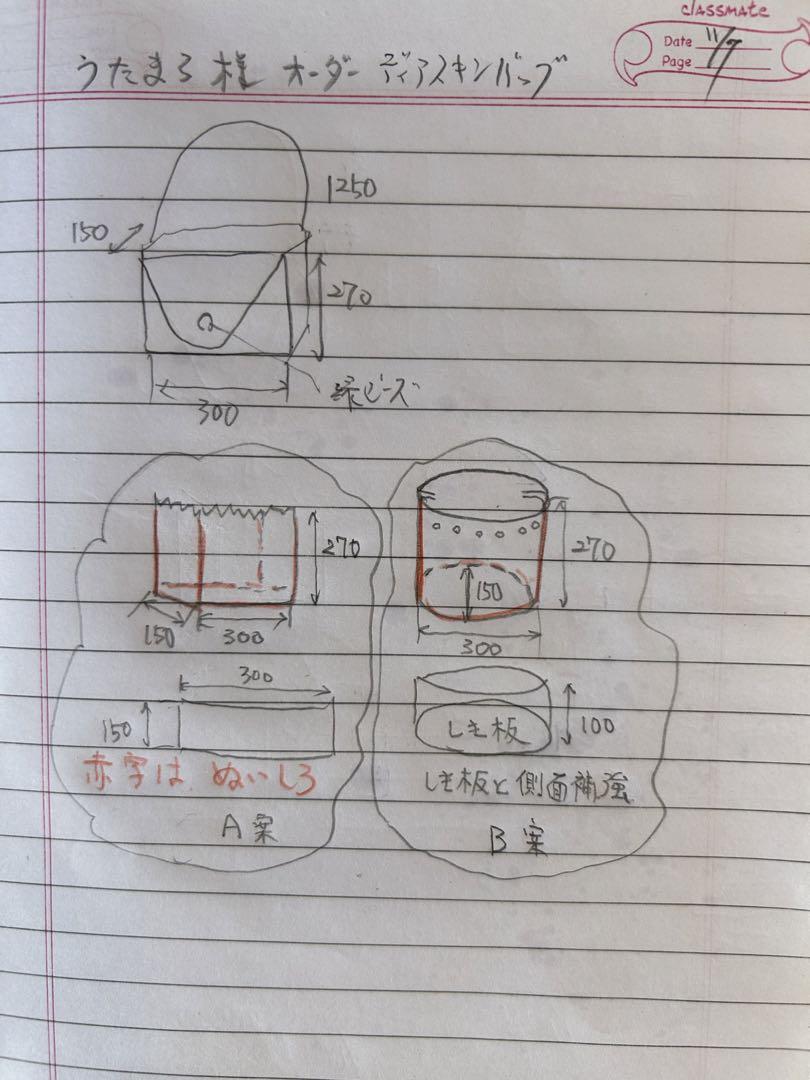 classmate
Date 11/7
Page
うたまろ様 オーダー ディアスキンバッグ
1250
150
270
300
緑ビーズ
270
150
300
300
150
赤字は ぬいしろ
A案
270
150
300
しき板
100
しき板と側面補強
B案